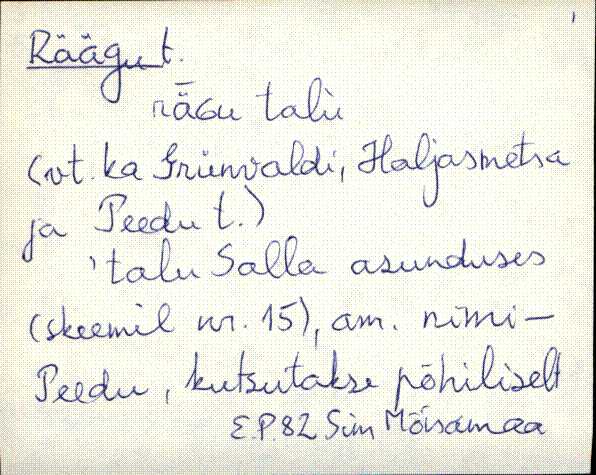 Räägu t.
rāɢu talù
(vt. ka Grünvaldi, Haljasmetsa
ja Peedu t.)
'talu Salla asunduses
(skeemil nr. 15), am. nimi –
Peedu, kutsutakse põhiliselt
E.P. 82 Sim Mõisamaa